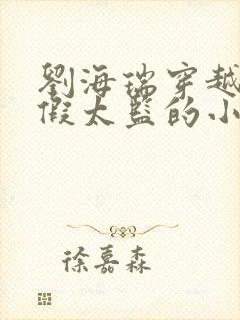 劉海瑞穿越
假太監的小
徐嘉森